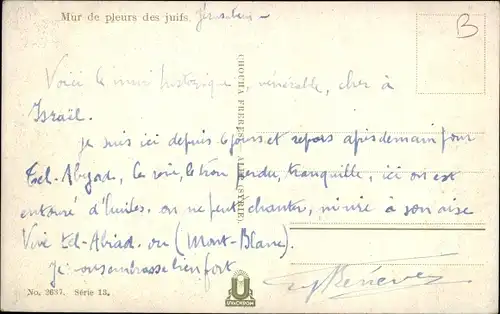 Mur de pleurs des juifs. Jérusalem
B
Voici le mur historique, vénérable, cher à
Israël.
Je suis ici depuis 6 jours et repars après demain pour
Tel-Abyad, le voie, le trou perdu, tranquille, ici on est
entouré d'huiles, on ne peut chanter, ni rire à son aise
Vive Tel-Abiad. ou (Mont-Blanc).
Je vous embrasse bien fort
CHOUHA FRERES ALEP (SYRIE)
No. 2637. Série 13.
U
UVACHROM